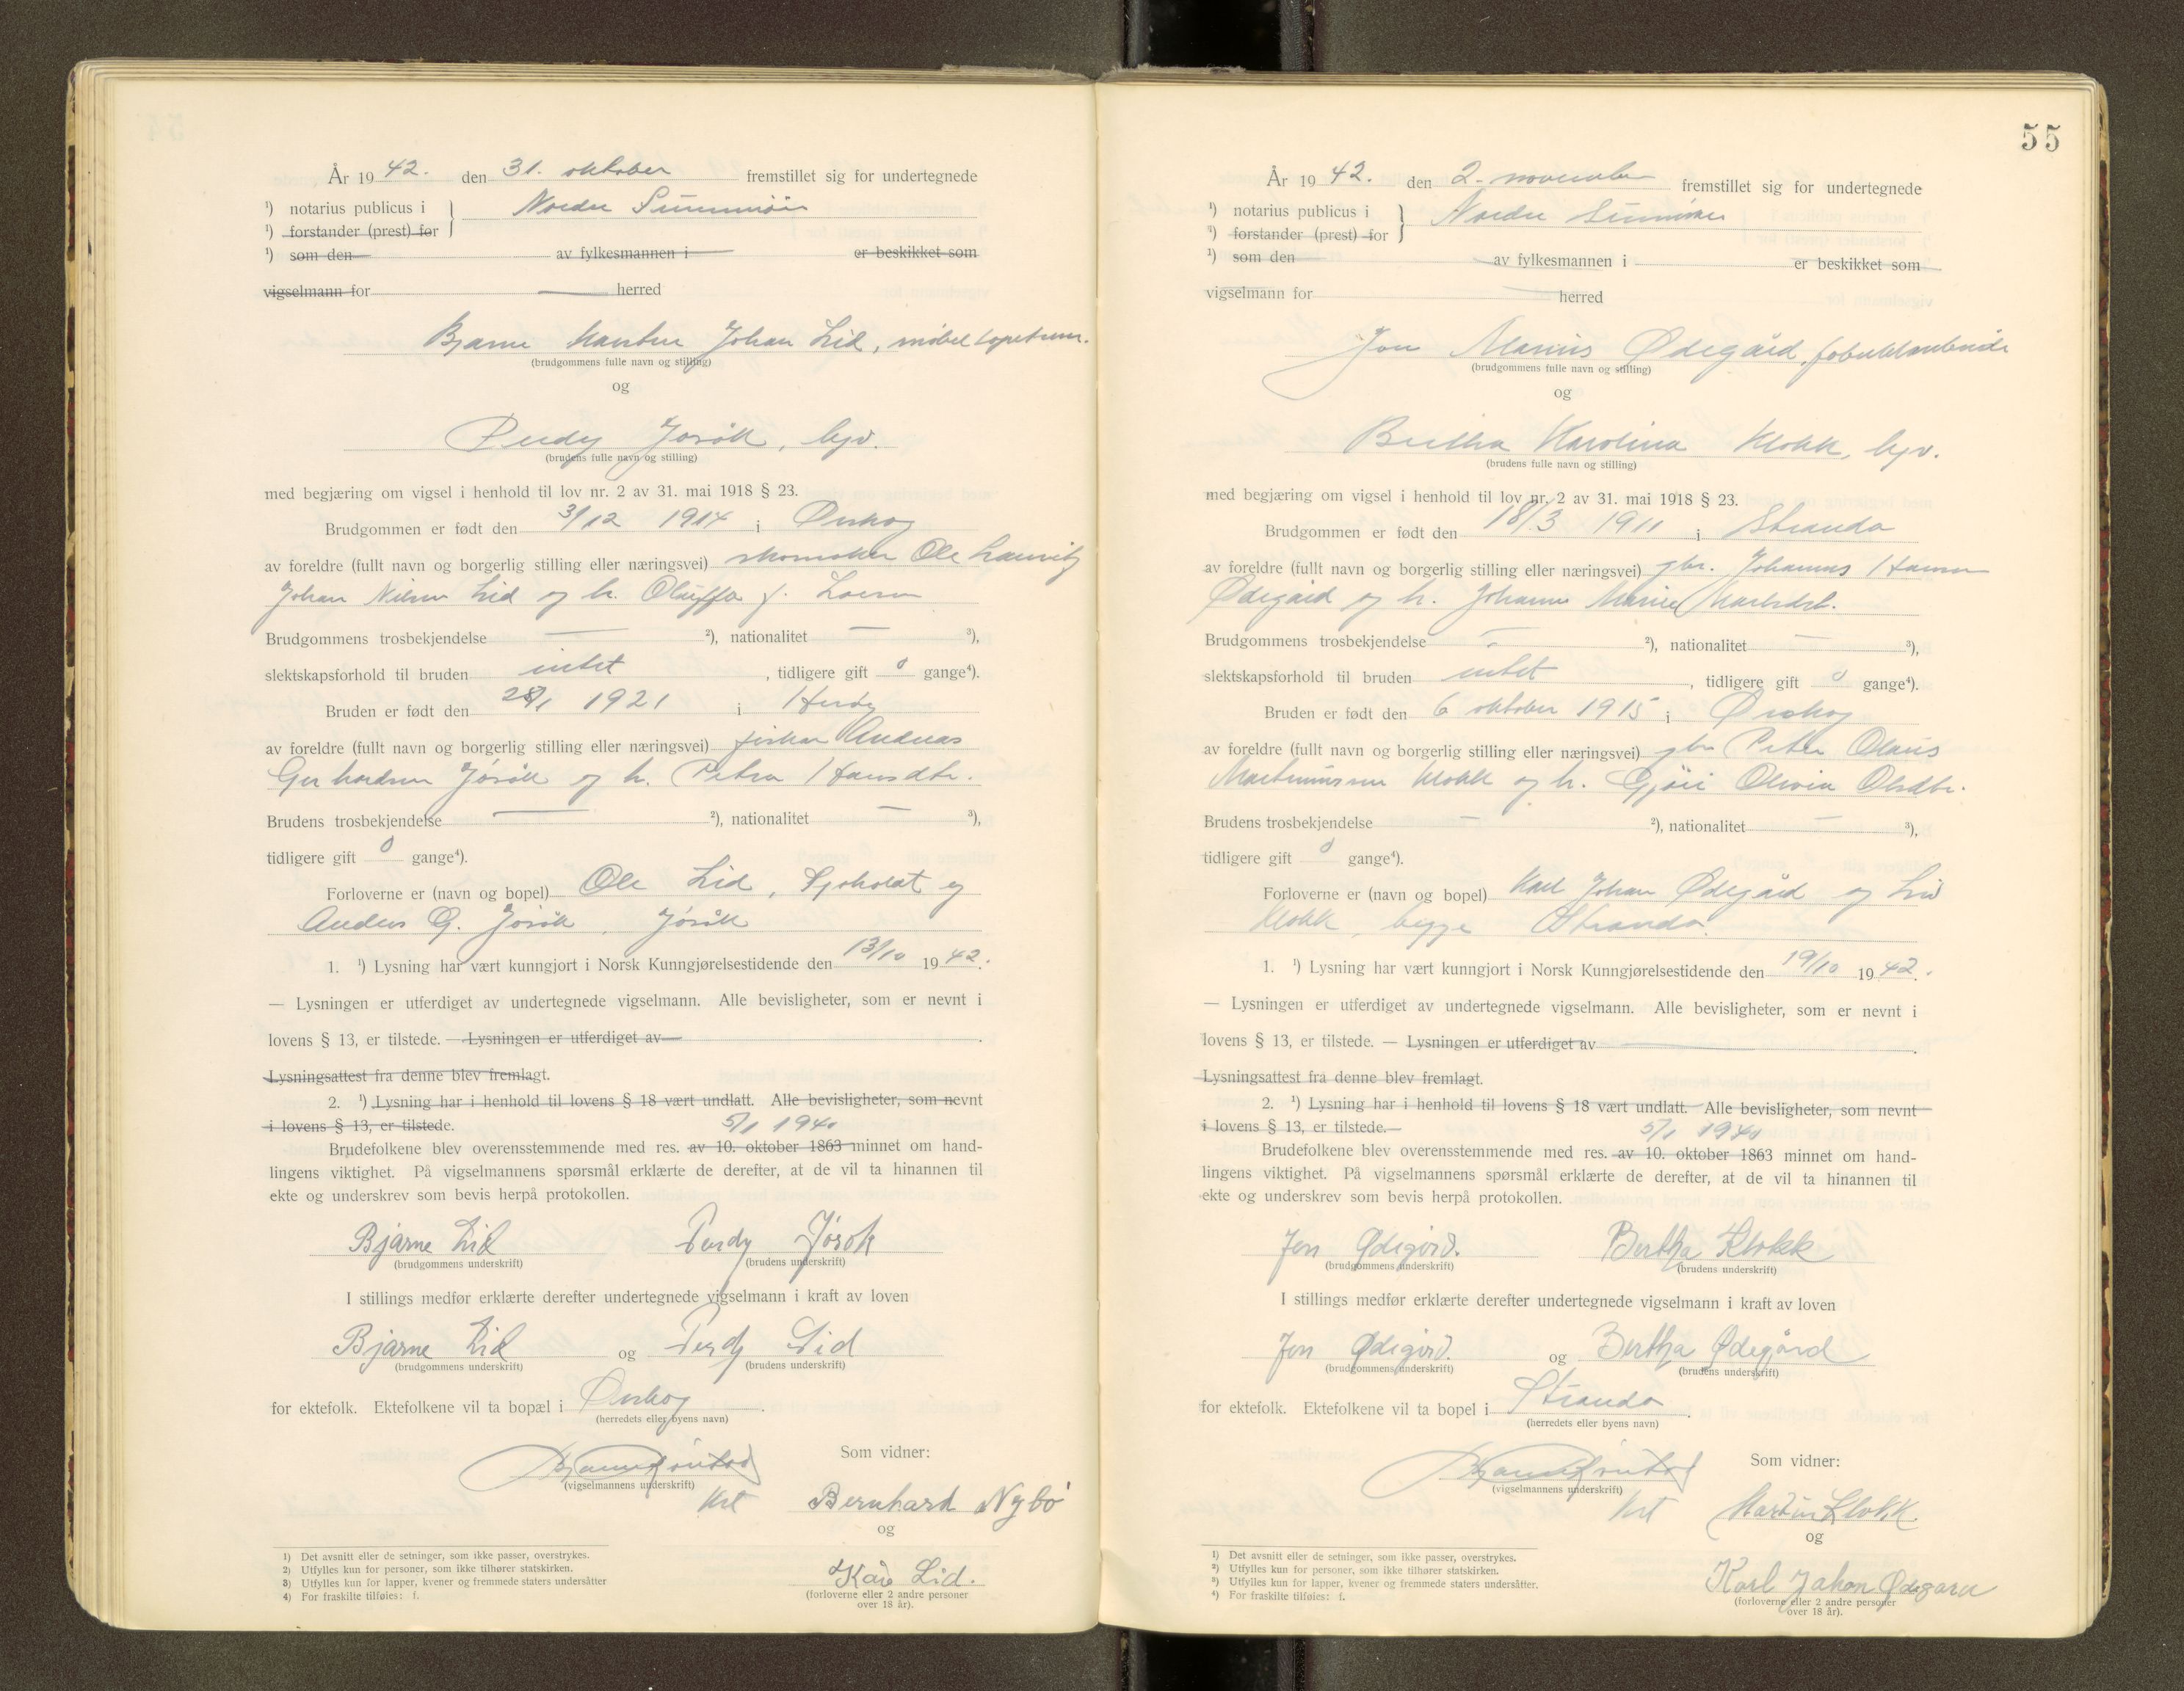 År 19 42. den 31. oktober fremstillet sig for undertegnede
¹) notarius publicus i } Nordre Sunnmøre
¹) forstander (prest) for
¹) som den av fylkesmannen i er beskikket som
vigselmann for herred
Bjarne Karsten Johan Lid, møbeltapetserer.
(brudgommens fulle navn og stilling)
og
Perdy Jøsøk, hjv.
(brudens fulle navn og stilling)
med begjæring om vigsel i henhold til lov nr. 2 av 31. mai 1918 § 23.
Brudgommen er født den 3/12 1914 i Ørskog
av foreldre (fullt navn og borgerlig stilling eller næringsvei) skomaker Ole Lauritz
Johan Nilsen Lid og h. Oluffa f. Larsen
Brudgommens trosbekjendelse — ²), nationalitet — ³),
slektskapsforhold til bruden intet, tidligere gift 0 gange⁴).
Bruden er født den 28/1 1921 i Herøy
av foreldre (fullt navn og borgerlig stilling eller næringsvei) fisker Andreas
Gerhardsen Jøsøk og h. Petra Hansdtr.
Brudens trosbekjendelse — ²), nationalitet — ³),
tidligere gift 0 gange⁴).
Forloverne er (navn og bopel) Ole Lid, Sjøholdt og
Anders G. Jøsøk, Jøsøk
1. ¹) Lysning har vært kunngjort i Norsk Kunngjørelsestidende den 13/10 19 42.
— Lysningen er utferdiget av undertegnede vigselmann. Alle bevisligheter, som er nevnt i
lovens § 13, er tilstede. — Lysningen er utferdiget av .
Lysningsattest fra denne blev fremlagt.
2. ¹) Lysning har i henhold til lovens § 18 vært undlatt. Alle bevisligheter, som nevnt
i lovens § 13, er tilstede. 5/1 1940
Brudefolkene blev overensstemmende med res. av 10. oktober 1863 minnet om hand-
lingens viktighet. På vigselmannens spørsmål erklærte de derefter, at de vil ta hinannen til
ekte og underskrev som bevis herpå protokollen.
Bjarne Lid Perdy Jøsok
(brudgommens underskrift) (brudens underskrift)
I stillings medfør erklærte derefter undertegnede vigselmann i kraft av loven
Bjarne Lid og Perdy Lid
(brudgommens underskrift) (brudens underskrift)
for ektefolk. Ektefolkene vil ta bopæl i Ørskog.
(herredets eller byens navn)
Som vidner:
(vigselmannens underskrift)
Bernhard Nybø
og
Kåre Lid.
(forloverne eller 2 andre personer
over 18 år).
1) Det avsnitt eller de setninger, som ikke passer, overstrykes.
2) Utfylles kun for personer, som ikke tilhører statskirken.
3) Utfylles kun for lapper, kvener og fremmede staters undersåtter
4) For fraskilte tilføies: f.
55
År 19 42. den 2. november fremstillet sig for undertegnede
¹) notarius publicus i } Nordre Sunnmøre
¹) forstander (prest) for
¹) som den av fylkesmannen i er beskikket som
vigselmann for herred
Jon Marius Ødegård, fabrikkarbeider
(brudgommens fulle navn og stilling)
og
Bertha Karolina Klokk, hjv.
(brudens fulle navn og stilling)
med begjæring om vigsel i henhold til lov nr. 2 av 31. mai 1918 § 23.
Brudgommen er født den 18/3 1911 i Stranda
av foreldre (fullt navn og borgerlig stilling eller næringsvei) gbr. Johannes Hansen
Ødegård og h. Johanne Marie
Brudgommens trosbekjendelse — ²), nationalitet — ³),
slektskapsforhold til bruden intet, tidligere gift 0 gange⁴).
Bruden er født den 6 oktober 1915 i Ørskog
av foreldre (fullt navn og borgerlig stilling eller næringsvei) gbr. Peter Olaus
Martinussen Klokk og h. Gjøri Olivia Olsdtr.
Brudens trosbekjendelse — ²), nationalitet — ³),
tidligere gift 0 gange⁴).
Forloverne er (navn og bopel) Karl Johan Ødegård og Liv
Klokk, begge Stranda.
1. ¹) Lysning har vært kunngjort i Norsk Kunngjørelsestidende den 19/10 19 42.
— Lysningen er utferdiget av undertegnede vigselmann. Alle bevisligheter, som er nevnt i
lovens § 13, er tilstede. — Lysningen er utferdiget av .
Lysningsattest fra denne blev fremlagt.
2. ¹) Lysning har i henhold til lovens § 18 vært undlatt. Alle bevisligheter, som nevnt
i lovens § 13, er tilstede. 5/1 1940
Brudefolkene blev overensstemmende med res. av 10. oktober 1863 minnet om hand-
lingens viktighet. På vigselmannens spørsmål erklærte de derefter, at de vil ta hinannen til
ekte og underskrev som bevis herpå protokollen.
Jon Ødegård. Bertha Klokk
(brudgommens underskrift) (brudens underskrift)
I stillings medfør erklærte derefter undertegnede vigselmann i kraft av loven
Jon Ødegård. og Bertha Ødegård
(brudgommens underskrift) (brudens underskrift)
for ektefolk. Ektefolkene vil ta bopel i Stranda.
(herredets eller byens navn)
Som vidner:
(vigselmannens underskrift)
Martin Klokk.
og
Karl Johan Ødegård
(forloverne eller 2 andre personer
over 18 år).
1) Det avsnitt eller de setninger, som ikke passer, overstrykes.
2) Utfylles kun for personer, som ikke tilhører statskirken.
3) Utfylles kun for lapper, kvener og fremmede staters undersåtter.
4) For fraskilte tilføies: f.